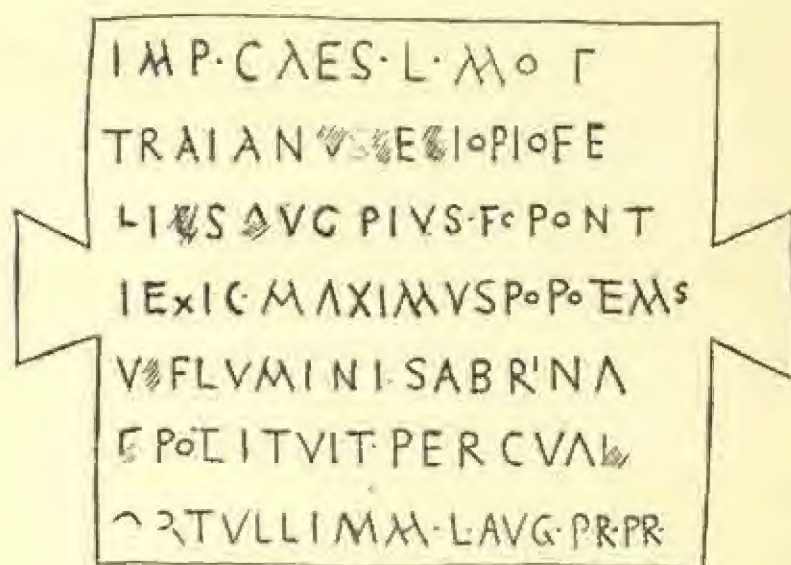 IMP·CAES·L·MO T
TRAIANVS E IOPIOFE
LI S AVG PIVS·Fc PONT
IExIC·MAXIMVSPoPoTEMs
V FLVMINI·SABRINA
PoEITVIT·PERCVAL
RTVLLIMM·L·AVG·PR·PR·